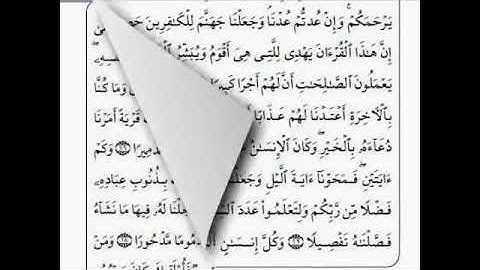 يَرْحَمَكُمْ وَإِنْ عُدتُّمْ عُدْنَا وَجَعَلْنَا جَهَنَّمَ لِلْكَٰفِرِينَ
إِنَّ هَٰذَا ٱلْقُرْءَانَ يَهْدِى لِلَّتِى هِىَ أَقْوَمُ وَيُبَشِّرُ
يَعْمَلُونَ ٱلصَّٰلِحَٰتِ أَنَّ لَهُمْ أَجْرًا وَمَا كُنَّا
بِٱلْءَاخِرَةِ أَعْتَدْنَا لَهُمْ عَذَابًا قَرْيَةً أَمَرْنَا
دُعَآءَهُۥ بِٱلْخَيْرِ وَكَانَ ٱلْإِنسَٰنُ وَكَمْ
ءَايَتَيْنِ فَمَحَوْنَآ ءَايَةَ ٱلَّيْلِ بِذُنُوبِ عِبَادِهِۦ
فَضْلًا مِّن رَّبِّكُمْ وَلِتَعْلَمُوا۟ عَدَدَ لَهُۥ فِيهَا مَا نَشَآءُ
فَصَّلْنَٰهُ تَفْصِيلًا ١٢ وَكُلَّ إِنسَٰنٍ مَّدْحُورًا ١٨ وَمَنْ